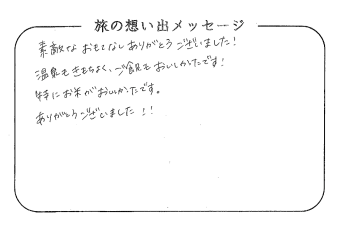 旅の想い出メッセージ
素敵なおもてなしありがとうございました!
温泉もきもちよく、ご飯もおいしかたです!
特にお米がおいしかたです。
ありがとうございました!!